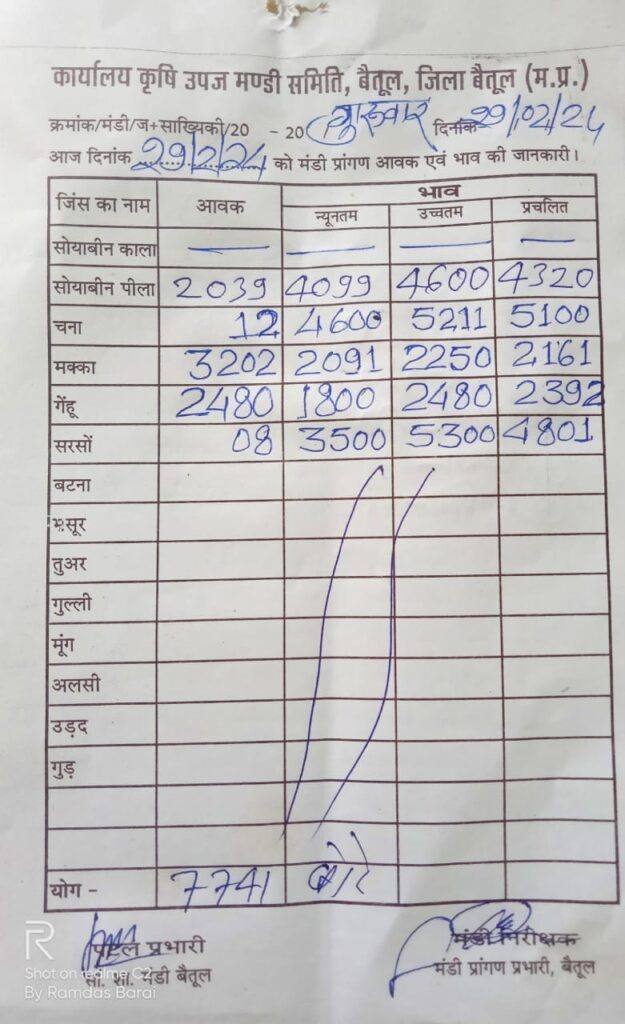 कार्यालय कृषि उपज मण्डी समिति, बैतूल, जिला बैतूल (म.प्र.)
क्रमांक/मंडी/ज+साख्यिकी/20 - 20 गुरूवार दिनांक 29/02/24
आज दिनांक 29/2/24 को मंडी प्रांगण आवक एवं भाव की जानकारी।
जिंस का नाम आवक भाव
न्यूनतम उच्चतम प्रचलित
सोयाबीन काला — — — —
सोयाबीन पीला 2039 4099 4600 4320
चना 12 4600 5211 5100
मक्का 3202 2091 2250 2161
गेंहू 2480 1800 2480 2392
सरसों 08 3500 5300 4801
बटना
मसूर
तुअर
गुल्ली
मूंग
अलसी
उड़द
गुड़
योग - 7741 बोरे
प्रभारी
सां. शा. मंडी बैतूल
मंडी निरीक्षक
मंडी प्रांगण प्रभारी, बैतूल
R
Shot on realme C2
By Ramdas Barai